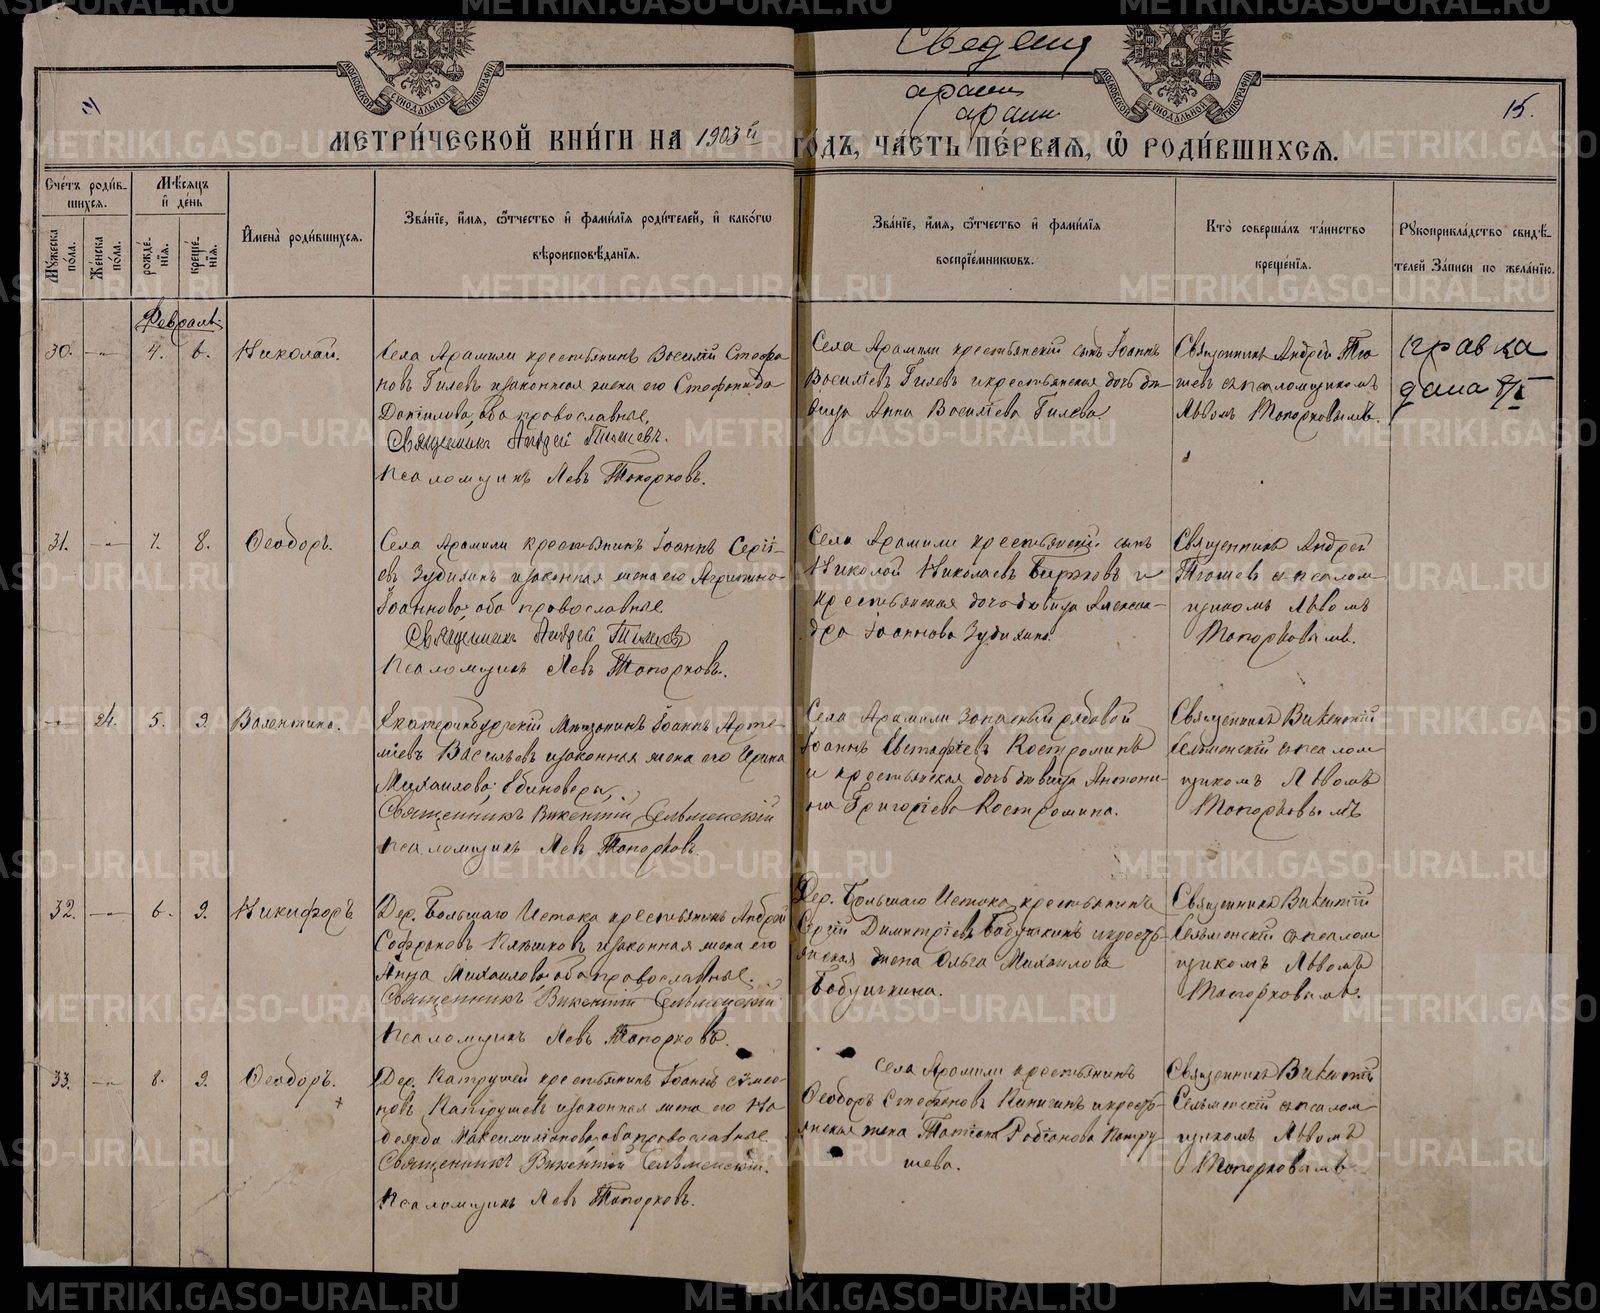 Сведения
15.
МЕТРИ́ЧЕСКОЙ КНИ́ГИ НА 1903й ГОДЪ, ЧА́СТЬ ПЕ́РВАЯ, Ѡ РОДИ́ВШИХСЯ.
МОСКОВСКОЙ СУНОДАЛЬНОЙ ТИПОГРАФІИ
МОСКОВСКОЙ СУНОДАЛЬНОЙ ТИПОГРАФІИ
Счетъ родив-
шихся.
Мужеска
пола.
Женска
пола.
Мѣсяцъ
и день
рожде-
нія.
креще-
нія.
Имена родившихся.
Званіе, имя, ѻтчество и фамилія родителей, и какогѡ
вѣроисповѣданія.
Званіе, имя, ѻтчество и фамилія
воспріемниковъ.
Кто совершалъ таинство
крещенія.
Рукоприкладство свидѣ-
телей записи по желанію.
Февраль.
30. 4. 6. Николай.
Села Арамили крестьянинъ Василій Стефа
новъ Гилевъ и законная жена его Стефанида
Даніилова, оба православные.
Священникъ Андрей
Псаломщикъ Левъ Топорковъ.
Села Арамили крестьянскій сынъ Іоаннъ
Васильевъ Гилевъ и крестьянская дочь дѣ-
вица Анна Васильева Гилева.
Священникъ Андрей
съ псаломщикомъ
Львомъ Топорковымъ.
справка
дана
31. 7. 8. Ѳеодоръ.
Села Арамили крестьянинъ Іоаннъ Сергі-
евъ Зудихинъ и законная жена его Агрипина
Іоаннова оба православные.
Священникъ Андрей
Псаломщикъ Левъ Топорковъ.
Села Арамили крестьянскій сынъ
Николай Николаевъ и
крестьянская дочь дѣвица Алексан-
дра Іоаннова Зудихина.
Священникъ Андрей
съ псалом
щикомъ Львомъ
Топорковымъ.
24. 5. 9. Валентина.
Екатеринбургскій мѣщанинъ Іоаннъ Арте-
міевъ Васильевъ и законная жена его Ирина
Михаилова; единоверы.
Священникъ Викентій Сельменскій
Псаломщикъ Левъ Топорковъ.
Села Арамили запасный рядовой
Іоаннъ Евстафіевъ Костроминъ
и крестьянская дочь дѣвица Антони-
на Григоріева Костромина.
Священникъ Викентій
Сельменскій съ псалом
щикомъ Львомъ
Топорковымъ
32. 6. 9. Никифоръ
Дер. Большаго Истока крестьянинъ Андрей
Софроновъ и законная жена его
Анна Михаилова оба православные.
Священникъ Викентій Сельменскій
Псаломщикъ Левъ Топорковъ.
Дер. Большаго Истока крестьянинъ
Сергій Димитріевъ Бабушкинъ и кресть-
янская жена Ольга Михаилова
Бабушкина.
Священникъ Викентій
Сельменскій съ псалом
щикомъ Львомъ
Топорковымъ.
33. 8. 9. Ѳеодоръ.
Дер. Патрушей крестьянинъ Іоаннъ Симео-
новъ Патрушевъ и законная жена его На-
дежда Максимиліанова оба православные.
Священникъ Викентій Сельменскій.
Псаломщикъ Левъ Топорковъ.
Села Арамили крестьянинъ
Ѳеодоръ Стефановъ и кресть-
янская жена Татіана Родіонова Патру
шева.
Священникъ Викентій
Сельменскій съ псалом
щикомъ Львомъ
Топорковымъ
METRIKI.GASO-URAL.RU